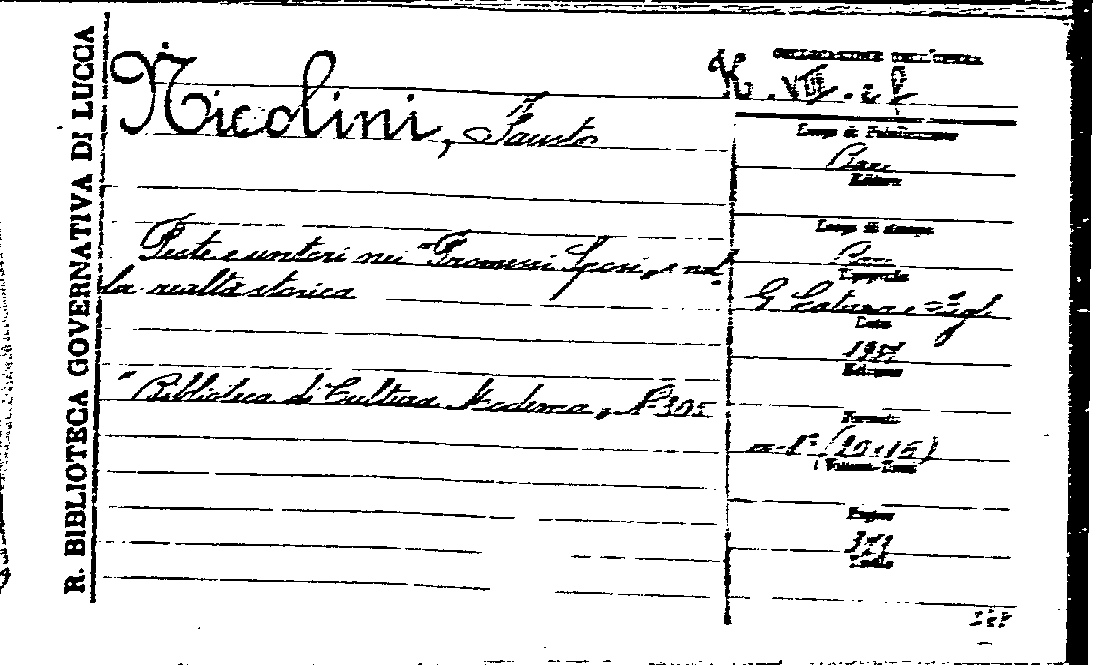 R. BIBLIOTECA GOVERNATIVA DI LUCCA
Nicolini, Fausto
Peste e untori nei "Promessi Sposi" e nel-
la realtà storica
"Biblioteca di Cultura Moderna" N° 305
COLLOCAZIONE DELL'OPERA
K. VIII.
Luogo di Pubblicazione
Bari
Editore
Luogo di stampa
Bari
Tipografia
G. Laterza e Figli
Data
Edizione
Formato
in-8° (20×15)
Pagine